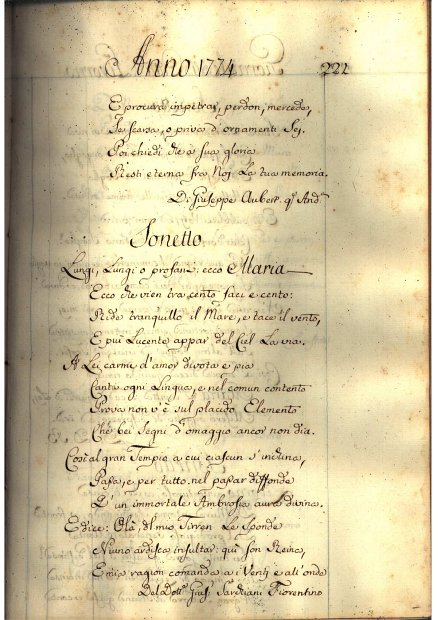 Anno 1774
221
E procura impetrar, perdon, mercede,
Se scarsa, o priva d'orgamenti Sej.
Poi chiedi che a sua gloria
Resti eterna fra Noj La tua memoria.
Di Giuseppe Aubert qm And.
Sonetto
Lungi, Lungi o profani: ecco Maria
Ecco che vien tra cento faci e cento:
Ride tranquillo il Mare, e tace il vento,
E più Lucente appar del Ciel La via.
A Lei carmi d'amor divota e pia
Canta ogni Lingua, e nel comun contento
Prova non v'è sul placido Elemento
Che bei Segni d'omaggio ancor non dia.
Così al gran Tempio a cui ciascun s'inchina,
Passa, e per tutto nel passar diffonde
D'un immortale Ambrosia aura divina.
E dice: Olà, al mio Tirren Le Sponde
Niuno ardisca insultar: qui son Reina,
E mia ragion comanda a i Venti e all'onde
Del Dott. Gasp. Sardiani Fiorentino